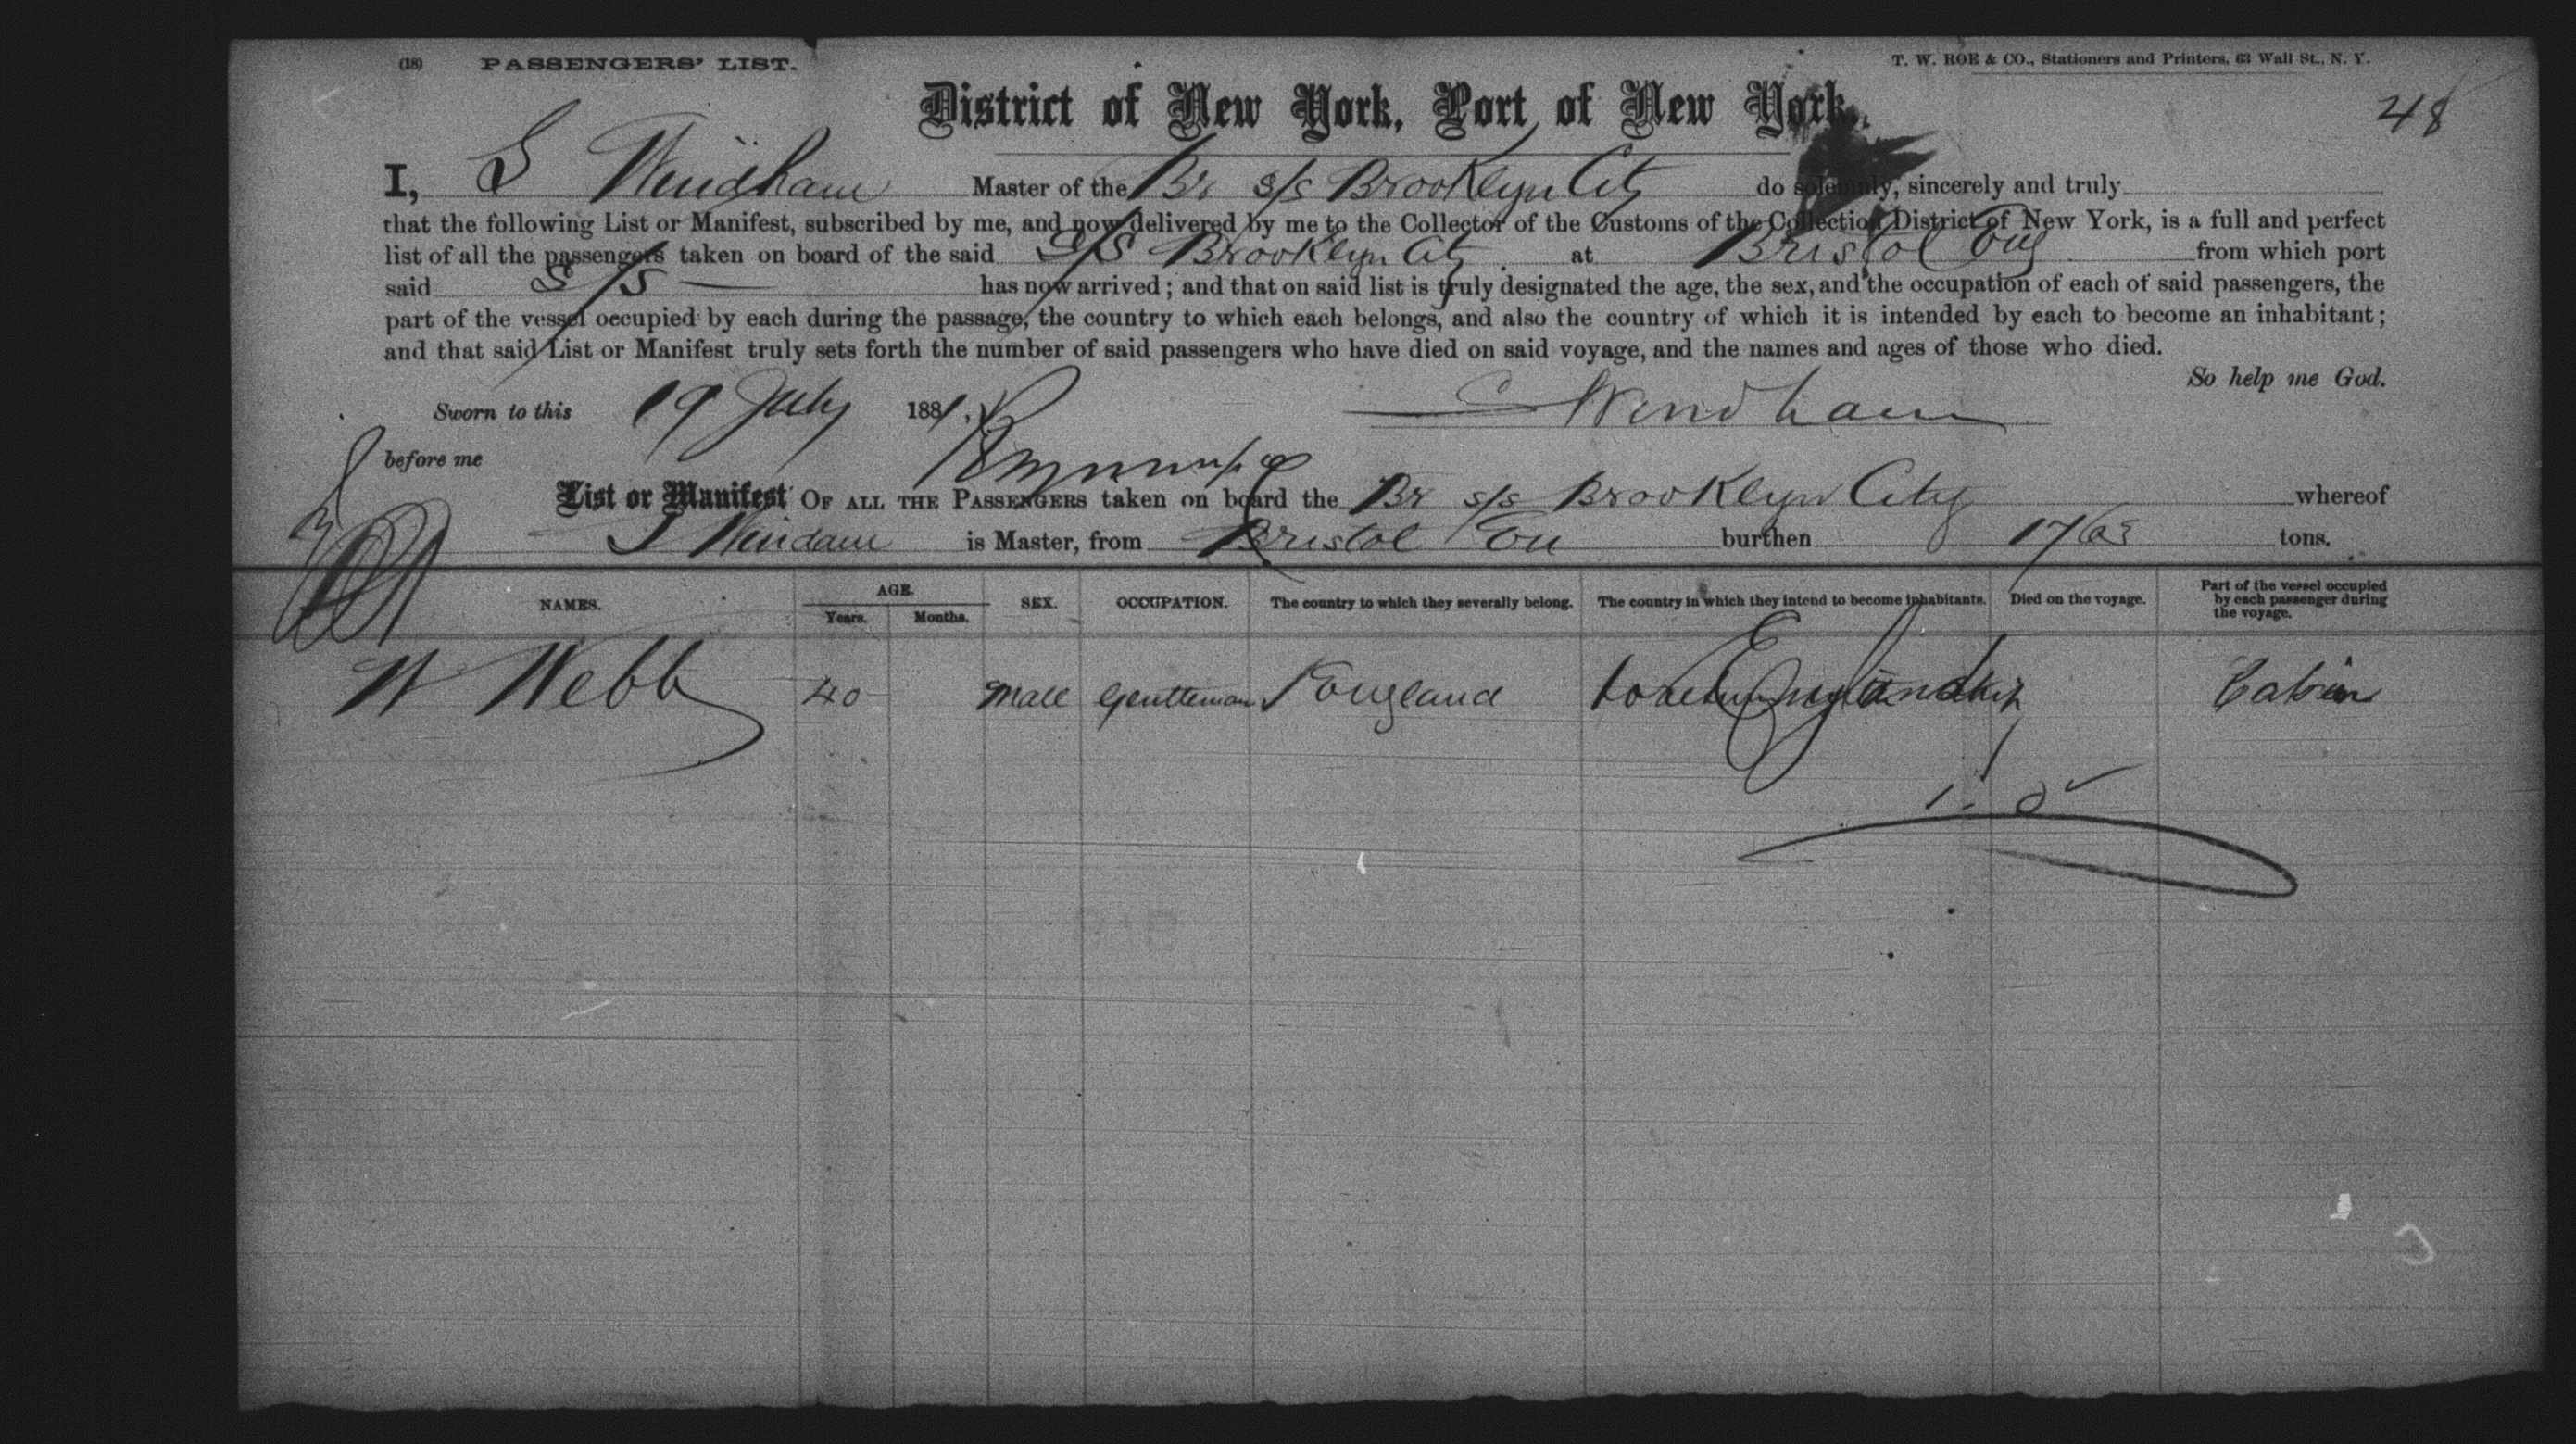 (18) PASSENGERS' LIST.
T. W. ROE & CO., Stationers and Printers, 63 Wall St., N. Y.
48
District of New York, Port of New York,
I, S Windham Master of the Br s/s Brooklyn City do solemnly, sincerely and truly
that the following List or Manifest, subscribed by me, and now delivered by me to the Collector of the Customs of the Collection District of New York, is a full and perfect
list of all the passengers taken on board of the said S/S Brooklyn City at Bristol Eng from which port
said S/S has now arrived; and that on said list is truly designated the age, the sex, and the occupation of each of said passengers, the
part of the vessel occupied by each during the passage, the country to which each belongs, and also the country of which it is intended by each to become an inhabitant;
and that said List or Manifest truly sets forth the number of said passengers who have died on said voyage, and the names and ages of those who died.
So help me God.
Sworn to this 19 July 1881. Windham
before me
List or Manifest OF ALL THE PASSENGERS taken on board the Br s/s Brooklyn City whereof
S Windam is Master, from Bristol En burthen 1763 tons.
NAMES. AGE. Years. Months. SEX. OCCUPATION. The country to which they severally belong. The country in which they intend to become inhabitants. Died on the voyage. Part of the vessel occupied by each passenger during the voyage.
W Webb 40 Male Gentleman England England Cabin